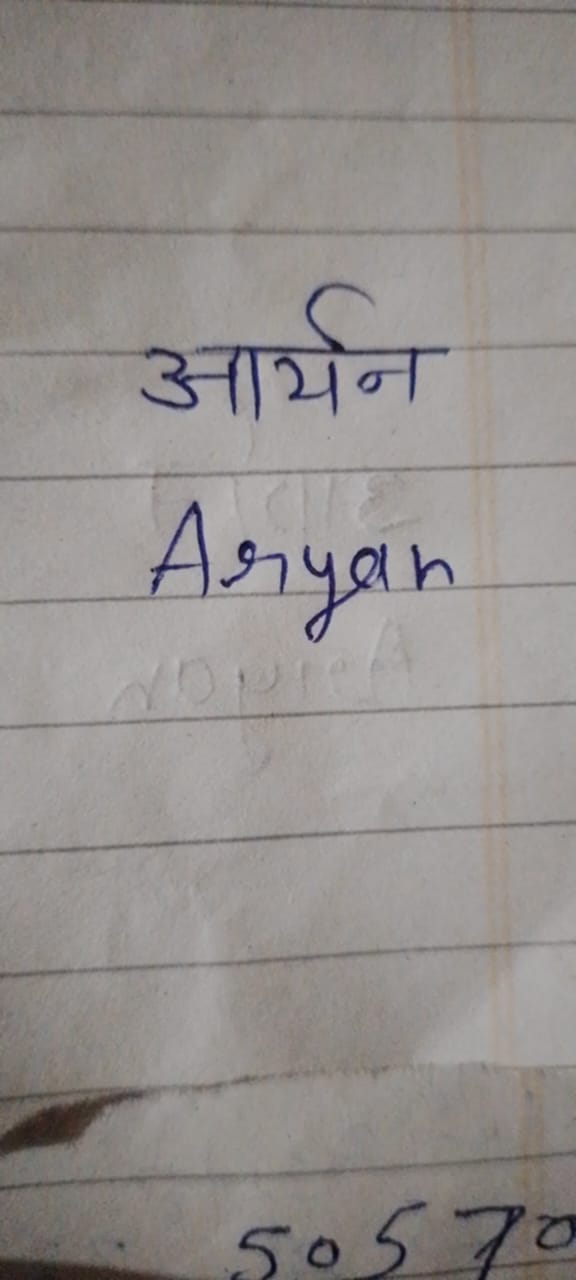 आर्यन
Aryan
50570